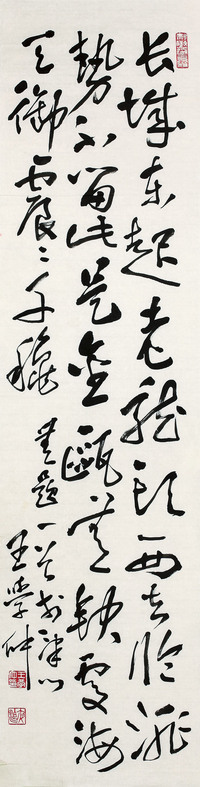 长城东起老龙头西去临洮
勢不留此是金瓯无缺处海
天御震〻千秋
题一首于津门
王学仲